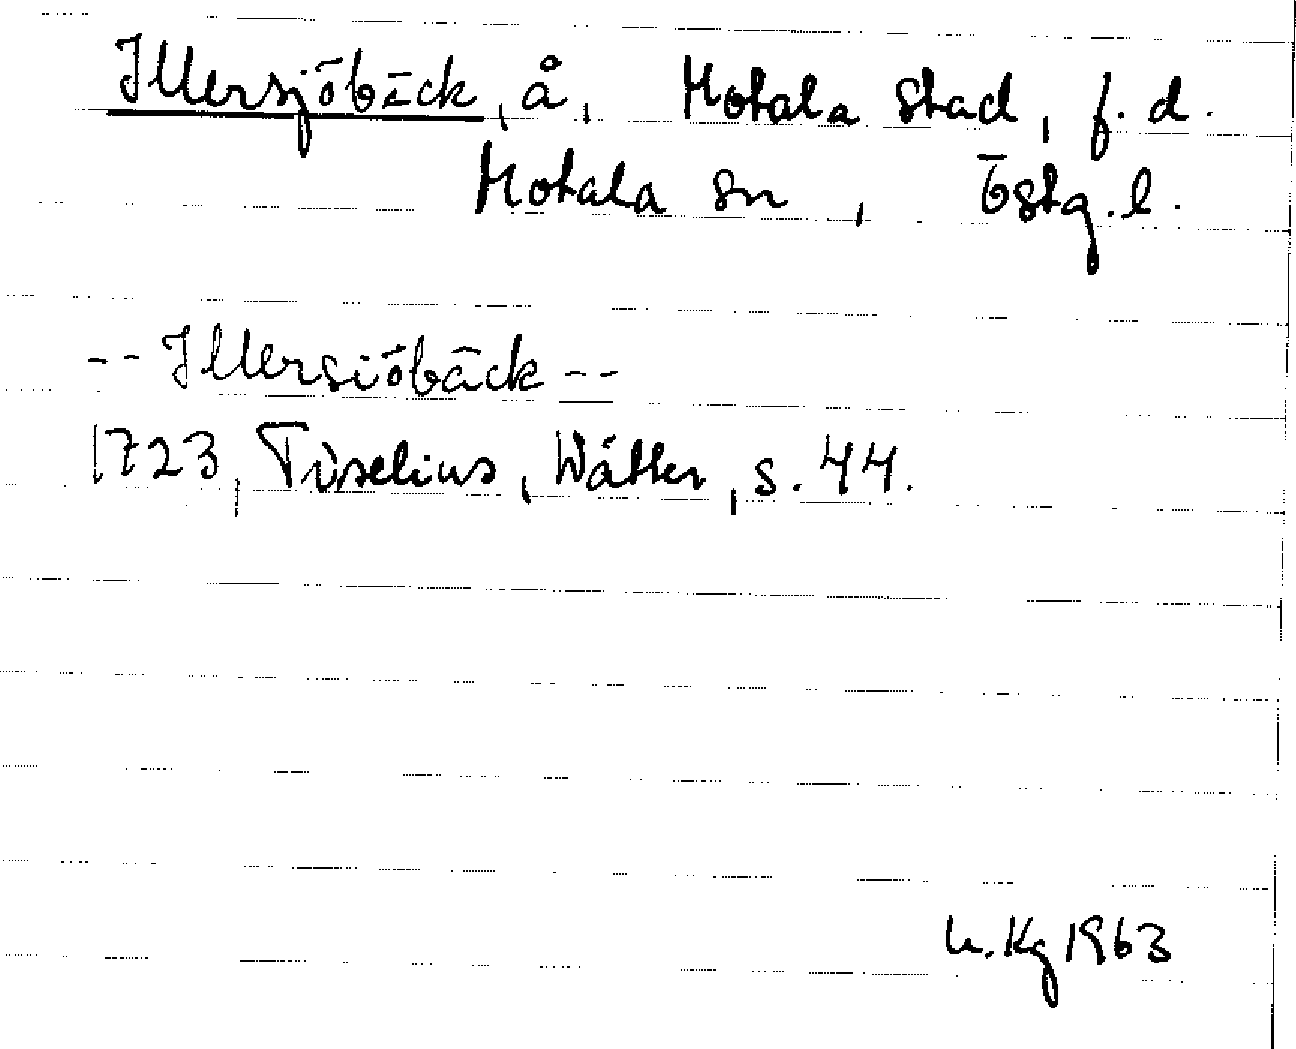 Illersjöbäck, å, Motala stad, f.d.
Motala sn, Östg.l.
-- Illersiöbäck --
1723, Tiselius, Wätter, s. 44.
Kg 1963